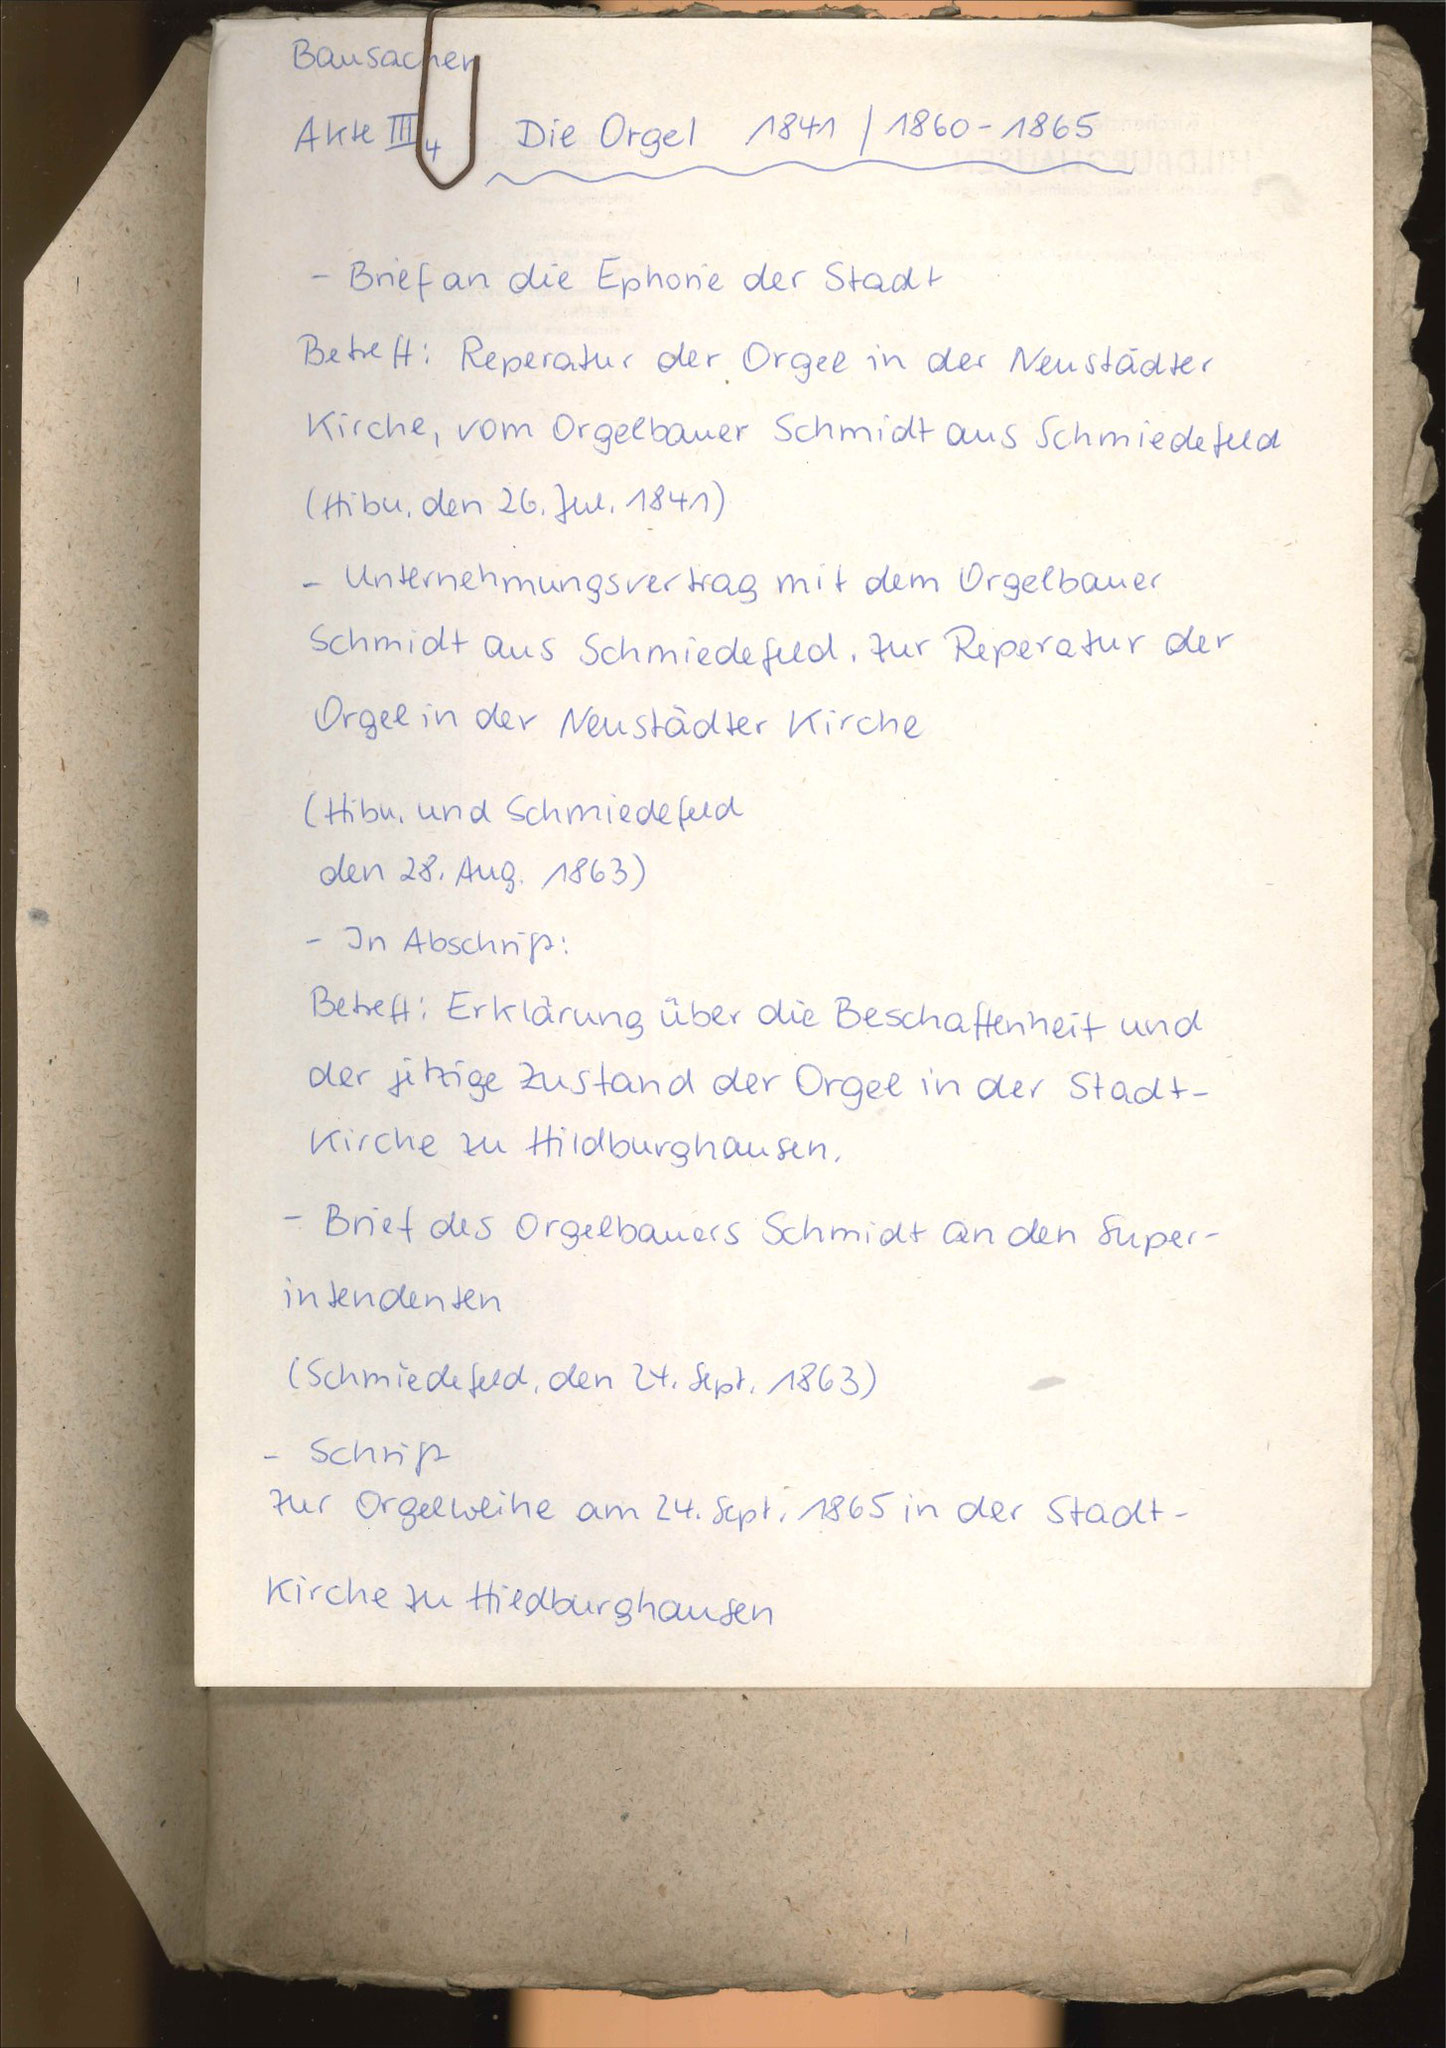 Bausachen
Akte III 4 Die Orgel 1841 / 1860-1865
- Brief an die Ephorie der Stadt
Betreff: Reperatur der Orgel in der Neustädter
Kirche, vom Orgelbauer Schmidt aus Schmiedefeld
(Hibu, den 26. Jul. 1841)
- Unternehmungsvertrag mit dem Orgelbauer
Schmidt aus Schmiedefeld, zur Reperatur der
Orgel in der Neustädter Kirche
(Hibu, und Schmiedefeld
den 28. Aug. 1863)
- In Abschrift:
Betreff: Erklärung über die Beschaffenheit und
der jetzige Zustand der Orgel in der Stadt-
Kirche zu Hildburghausen.
- Brief des Orgelbauers Schmidt an den Super-
intendenten
(Schmiedefeld, den 24. Sept. 1863)
- Schrift
zur Orgelweihe am 24. Sept. 1865 in der Stadt-
Kirche zu Hildburghausen